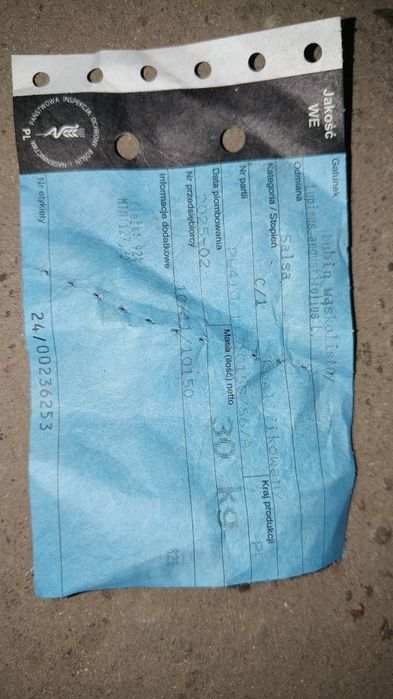 Jakość
WE
PAŃSTWOWA INSPEKCJA OCHRONY ROŚLIN I NASIENNICTWA
PL
Gatunek
Łubin wąskolistny
Lupinus angustifolius L.
Odmiana
Salsa
Kategoria / Stopień
C/1
Kraj produkcji
Nr partii
Data plombowania
2025-02
Masa (ilość) netto
30 kg
Nr przedsiębiorcy
10/11/10150
Informacje dodatkowe
Nr etykiety
24/00236253